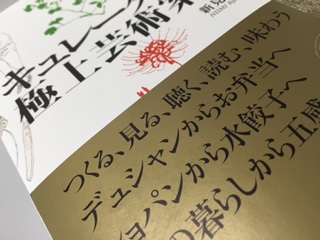 新見
NIIMI
キュレー
極上芸術
つくる、見る、聴く、読む、味わう
デュシャンからお弁当へ
ョパンから水餃子へ
の暮らしから五感